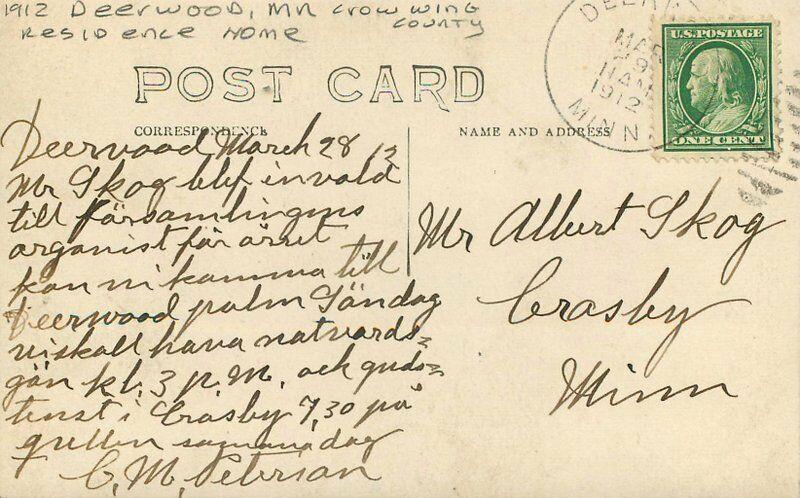 1912 Deerwood, MN Crow Wing
County
Residence Home
POST CARD
CORRESPONDENCE
NAME AND ADDRESS
U.S. POSTAGE
ONE CENT
MAR
29
11 AM
1912
MINN
Deerwood March 28 12
Mr Skog blef invald
till församlingens
organist för året
kan ni komma till
Deerwood palm Söndag
vi skall hava natvards=
gån kl. 3 p.m. och guds=
tenst i Crosby 7,30 på
qvellen samma dag
C, M, Peterson
Mr Albert Skog
Crosby
Minn